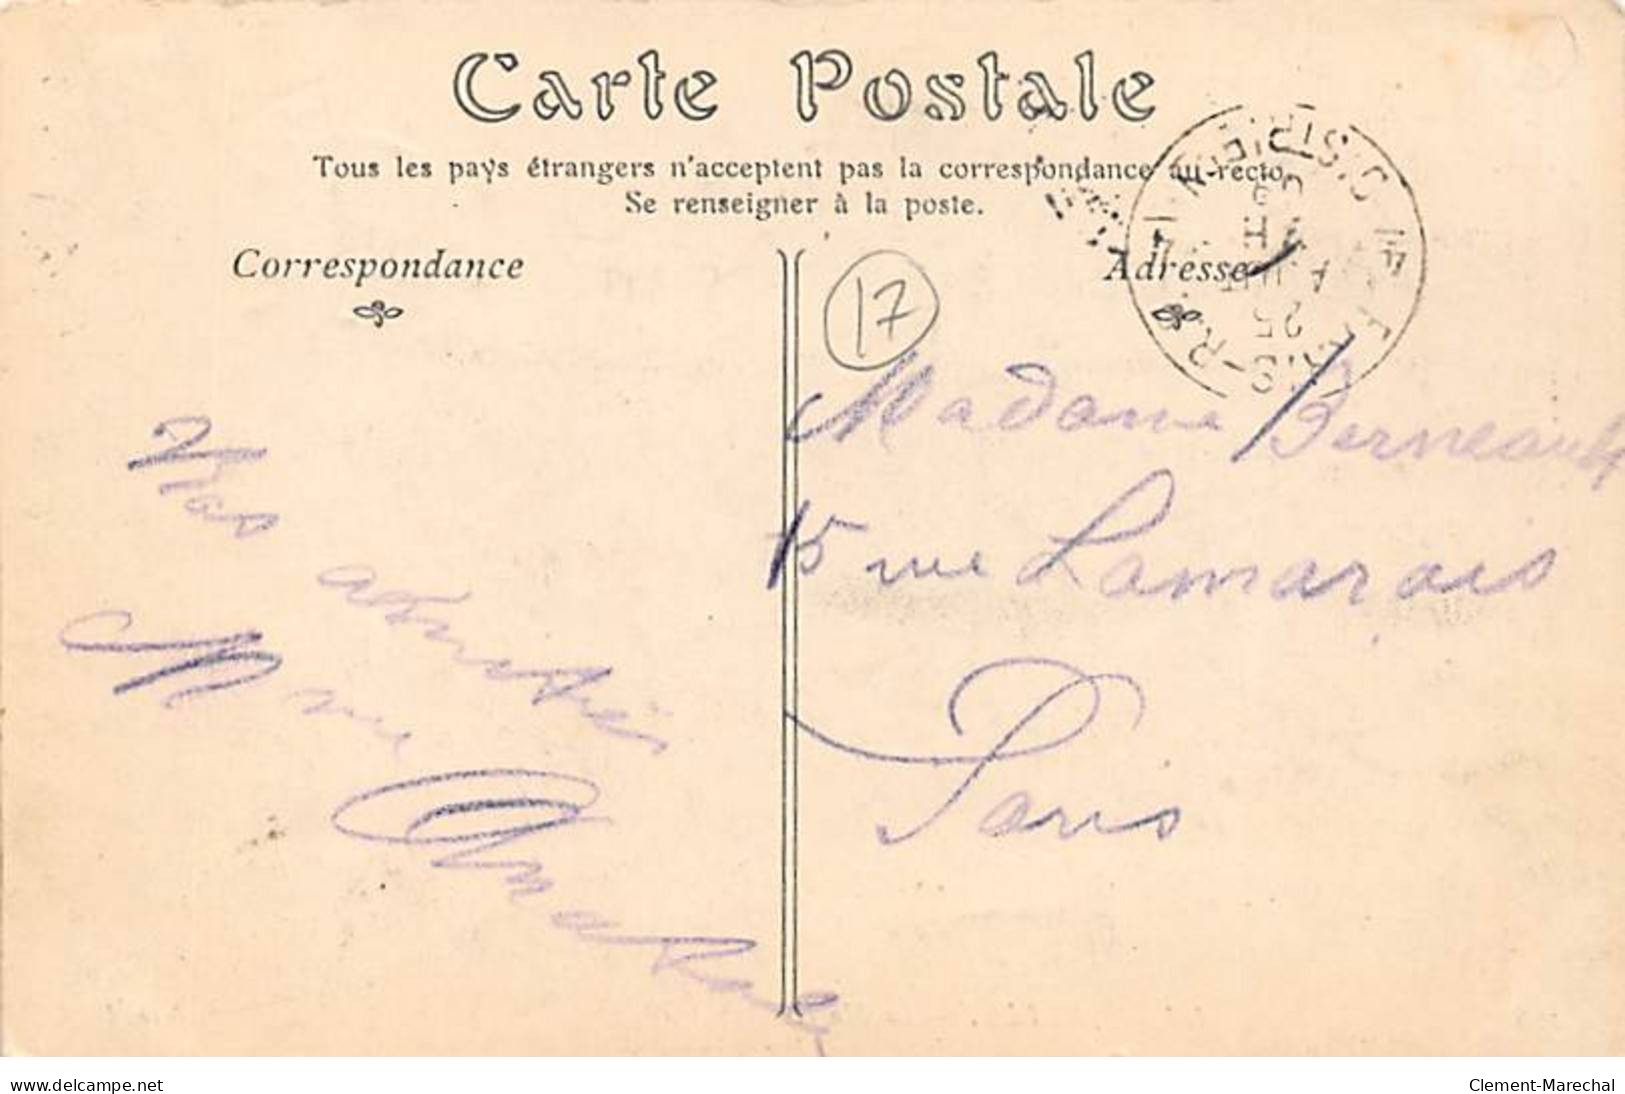 Carte Postale
Tous les pays étrangers n'acceptent pas la correspondance au recto,
Se renseigner à la poste.
Correspondance
Adresse
17
Madame Berneault
15 rue Lamarais
Paris
Mes
Mme
DISTRIBON
25
www.delcampe.net
Clement-Marechal